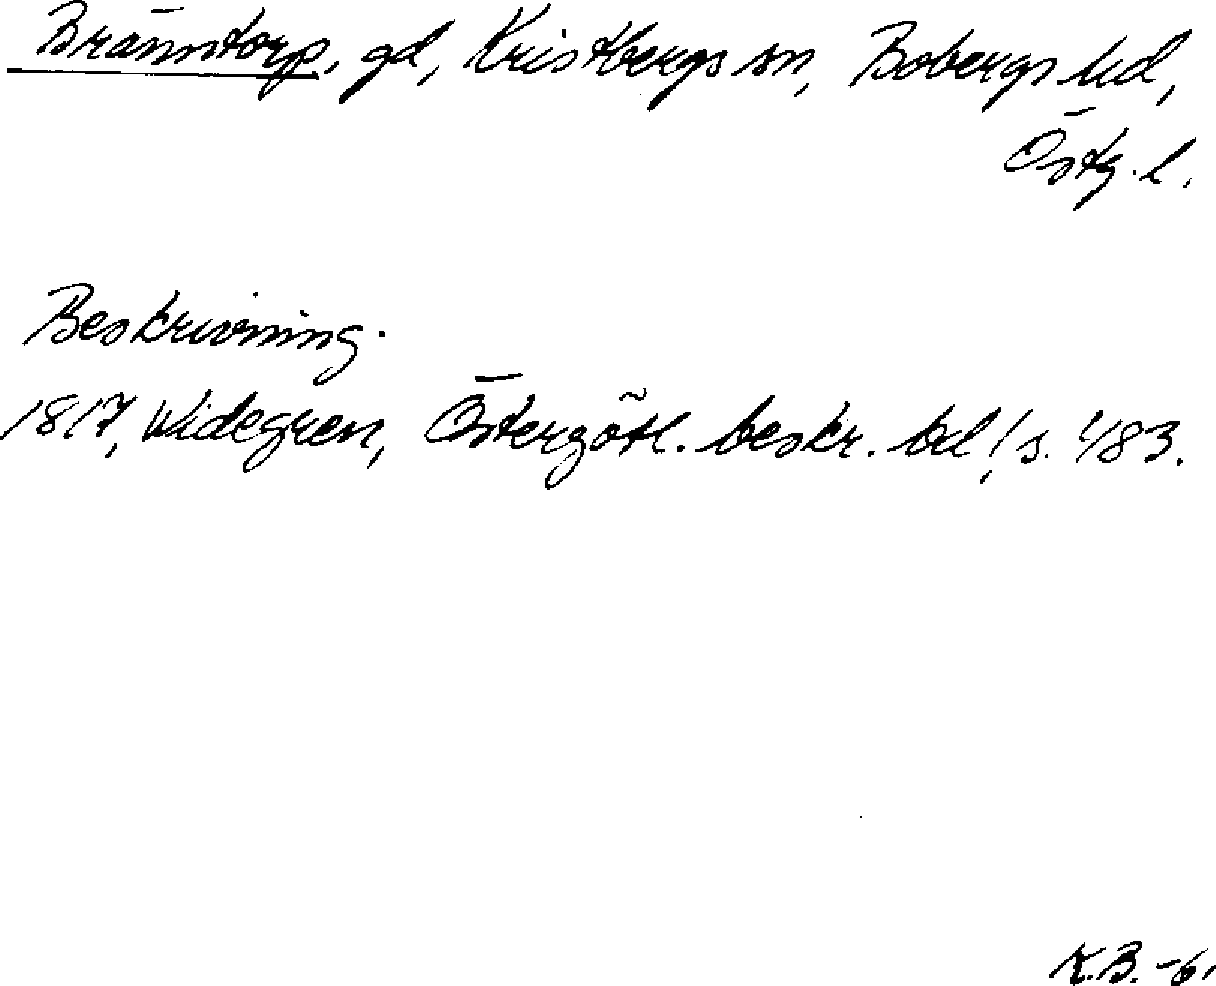 Bränntorp, gd, Kristbergs sn, Bobergs hd,
Östg. l.
Beskrivning.
1817, Widegren, Östergötl. beskr. bd 1, s. 483.
K.B. -61